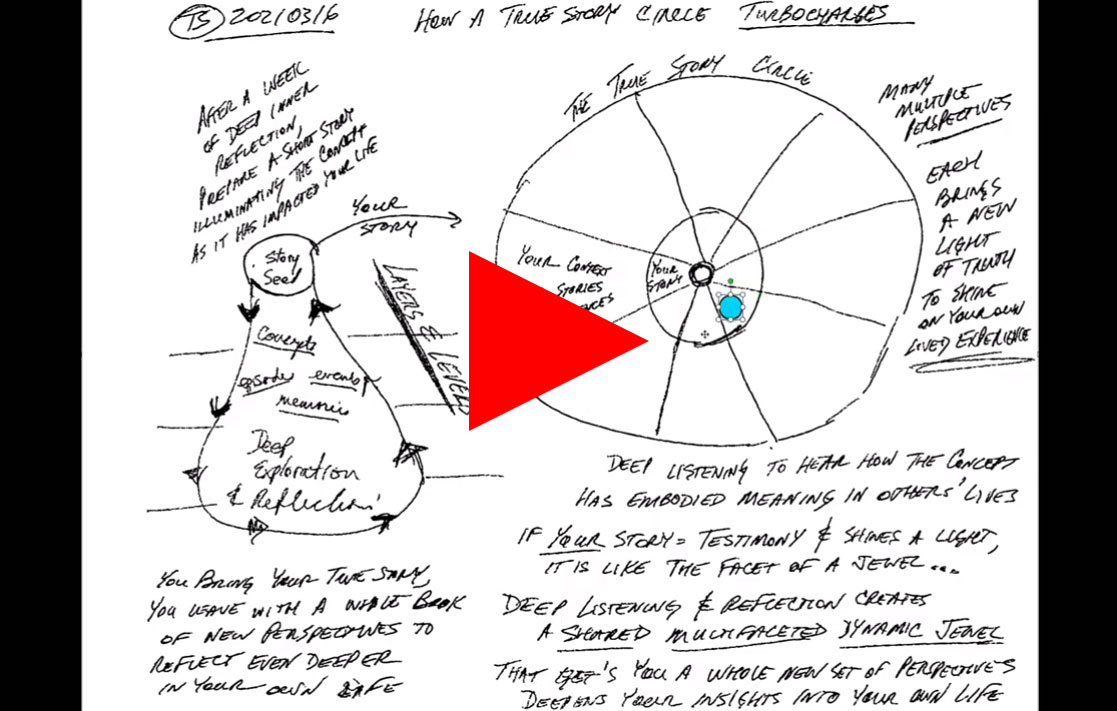 TS 2021/03/6
HOW A TRUE STORY CIRCLE TURBOCHARGES
AFTER A WEEK
OF DEEP INNER
REFLECTION,
PREPARE A SHORT STORY
ILLUMINATING THE CONCEPT
AS IT HAS IMPACTED YOUR LIFE
YOUR
STORY
Story
Seed
LAYERS & LEVELS
Concepts
episodes events
memories
Deep
Exploration
& Reflection
YOU BRING YOUR TRUE STORY,
YOU LEAVE WITH A WHOLE BOOK
OF NEW PERSPECTIVES TO
REFLECT EVEN DEEPER
IN YOUR OWN LIFE
THE TRUE STORY CIRCLE
YOUR CONTEXT
STORIES
YOUR
STORY
MANY
MULTIPLE
PERSPECTIVES
EACH
BRINGS
A NEW
LIGHT
OF TRUTH
TO SHINE
ON YOUR OWN
LIVED EXPERIENCE
DEEP LISTENING TO HEAR HOW THE CONCEPT
HAS EMBODIED MEANING IN OTHERS' LIVES
IF YOUR STORY = TESTIMONY & SHINES A LIGHT,
IT IS LIKE THE FACET OF A JEWEL...
DEEP LISTENING & REFLECTION CREATES
A SHARED MULTIFACETED DYNAMIC JEWEL
THAT GET'S YOU A WHOLE NEW SET OF PERSPECTIVE'S
DEEPENS YOUR INSIGHTS INTO YOUR OWN LIFE